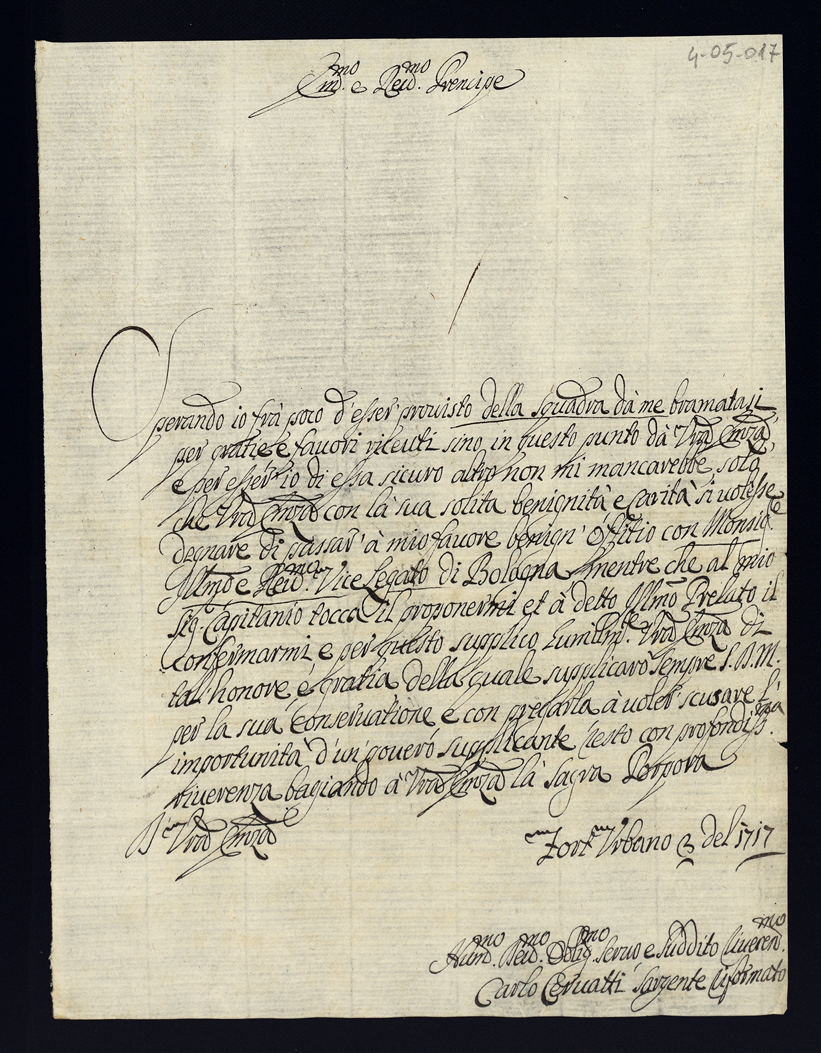 4-05-017
Em.mo e Reud.mo Prencipe
Sperando io frà poco d'esser prouisto della squadra dà me bramatasi
per gratie e fauori riceuti sino in questo punto dà Vrã Emza,
e per esser io di essa sicuro altro non mi mancarebbe solo,
che Vrã Emza con là sua solita benignità e carità si uolesse
degnare di passar' à mio fauore benign' Offitio con Monsig.e
Jllmo e Reud.mo Vice Legato di Bologna mentre che al mio
Sig. Capitanio tocca il propon­ermi et à detto Jllmo Prelato il
confermarmi e per questo supplico humilm.te Vrã Emza di
tal' honore, e gratia della quale supplicarò sempre S. D. M.
per la sua conseruatione e con pregarla à uoler scusare l'
importunità d'un pouero supplicante resto con profondiss.ma
riuerenza bagiando à Vrã Emza là sagra Porpora
D Vrã Emza
Fort. Vrbano 3 del 1717
Hum.mo Reud.mo Oblig.mo Seruo e Suddito Riueren.mo
Carlo Ceruatti Sargente Riformato